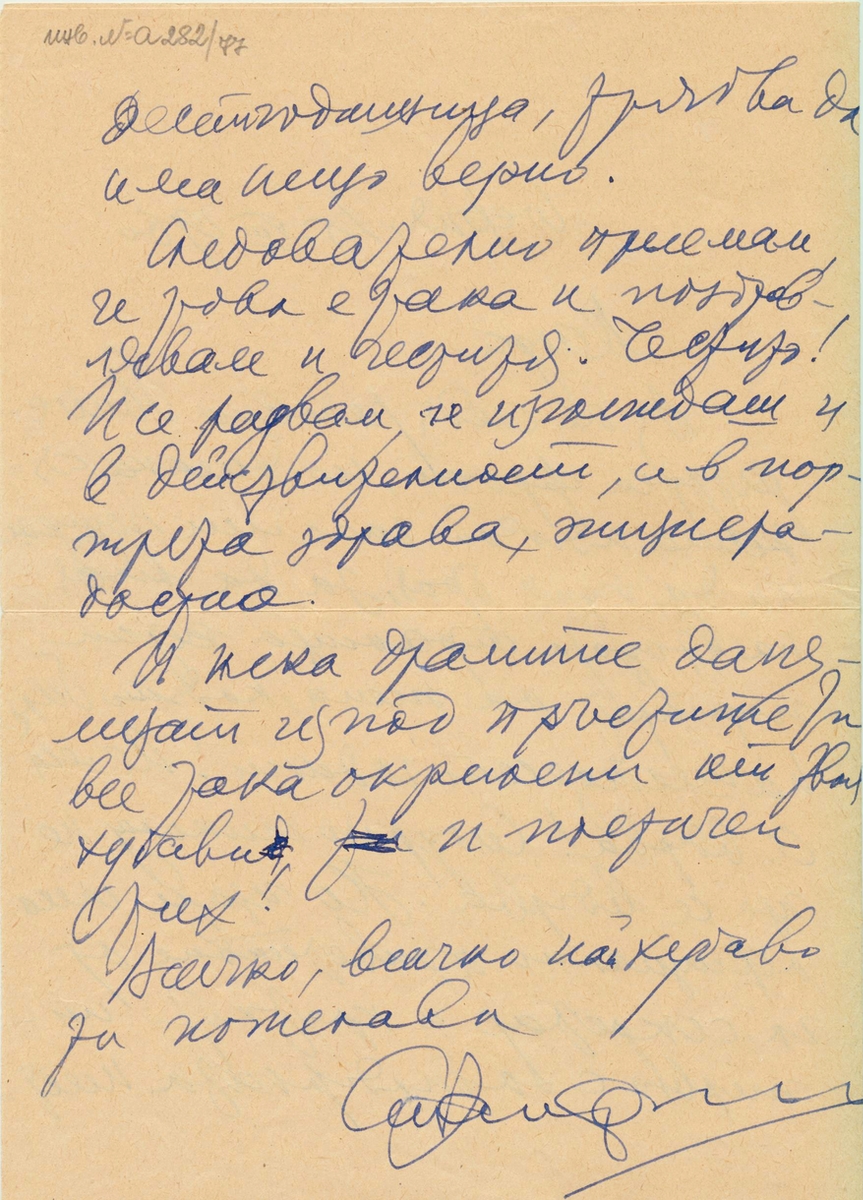 инв. №а 282/77
десетгодишнина, трябва да
има нещо вярно.
Следователно приемам,
че това е така и поздра-
влявам и честитя. Честито!
И се радвам, че изглеждаш и
в действителност, и в пор-
трета здрава, жизнера-
достна.
И нека драмите да ня-
мат изпод пръстите ти
все така окриленни от твоя
хубавия, и поетичен
стих!
Всичко, всичко най хубаво
ти пожелава